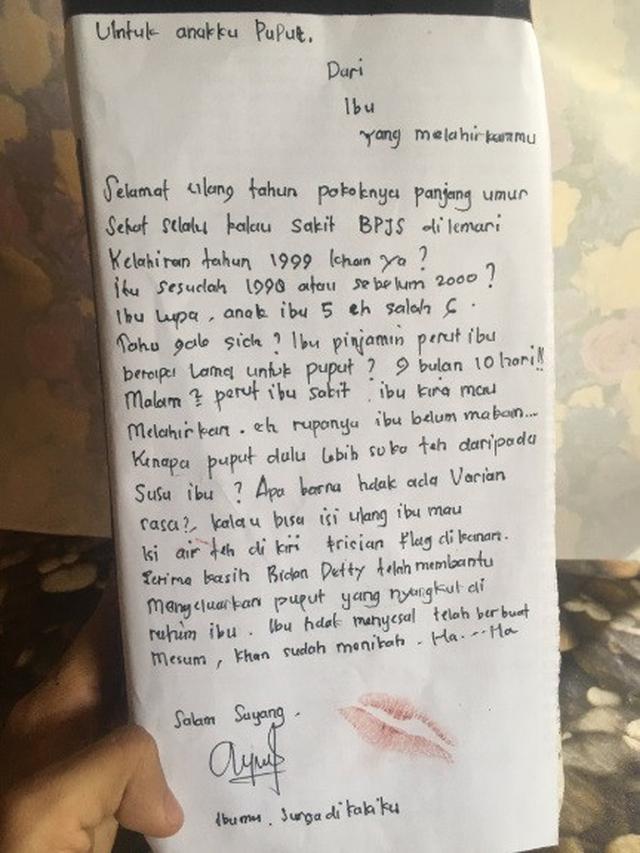 Untuk anakku Puput.
Dari
Ibu
yang melahirkanmu
Selamat ulang tahun pokoknya panjang umur
Sehat selalu kalau sakit BPJS di lemari
Kelahiran tahun 1999 khan ya?
itu sesudah 1990 atau sebelum 2000?
Ibu lupa, anak ibu 5 eh salah 6.
Tahu gak sich? Ibu pinjamin perut ibu
berapa lama untuk puput? 9 bulan 10 hari!!
Malam2 perut ibu sakit. ibu kira mau
Melahirkan. eh rupanya ibu belum makan...
Kenapa puput dulu lebih suka teh daripada
Susu ibu? Apa karna tidak ada Varian
rasa?, kalau bisa isi ulang ibu mau
isi air teh di kiri frisian flag di kanan.
Terima kasih Bidan Detty telah membantu
Mengeluarkan puput yang nyangkut di
rahim ibu. Ibu tidak menyesal telah berbuat
Mesum, khan sudah menikah. Ha...Ha
Salam Sayang.
Ibumu. Surga di kakiku